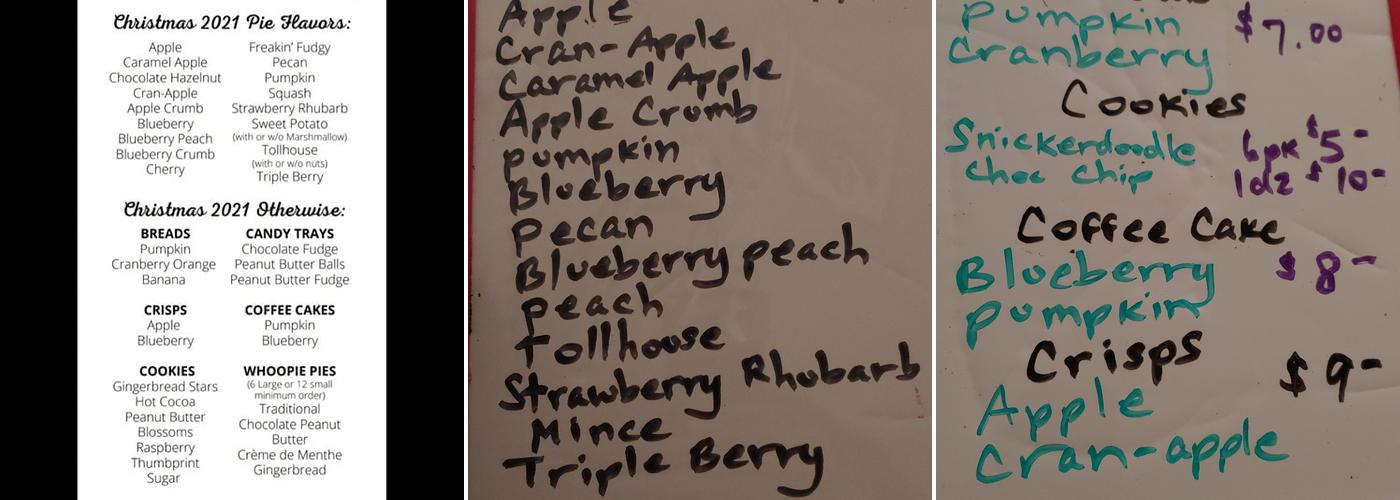 Christmas 2021 Pie Flavors:
Apple
Caramel Apple
Chocolate Hazelnut
Cran-Apple
Apple Crumb
Blueberry
Blueberry Peach
Blueberry Crumb
Cherry
Freakin' Fudgy
Pecan
Pumpkin
Squash
Strawberry Rhubarb
Sweet Potato
(with or w/o Marshmallow)
Tollhouse
(with or w/o nuts)
Triple Berry
Christmas 2021 Otherwise:
BREADS
Pumpkin
Cranberry Orange
Banana
CANDY TRAYS
Chocolate Fudge
Peanut Butter Balls
Peanut Butter Fudge
CRISPS
Apple
Blueberry
COFFEE CAKES
Pumpkin
Blueberry
COOKIES
Gingerbread Stars
Hot Cocoa
Peanut Butter
Blossoms
Raspberry
Thumbprint
Sugar
WHOOPIE PIES
(6 Large or 12 small
minimum order)
Traditional
Chocolate Peanut
Butter
Crème de Menthe
Gingerbread
Apple
Cran-Apple
Caramel Apple
Apple Crumb
pumpkin
Blueberry
pecan
Blueberry peach
peach
Tollhouse
Strawberry Rhubarb
Mince
Triple Berry
pumpkin $7.00
Cranberry
Cookies
Snickerdoodle 6pk $5-
Choc Chip 1dz $10-
Coffee Cake
Blueberry $8-
pumpkin
Crisps $9-
Apple
Cran-apple